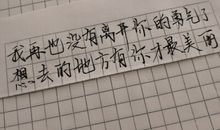 我再也没有离开你的勇气了
想去的地方有你才最美丽